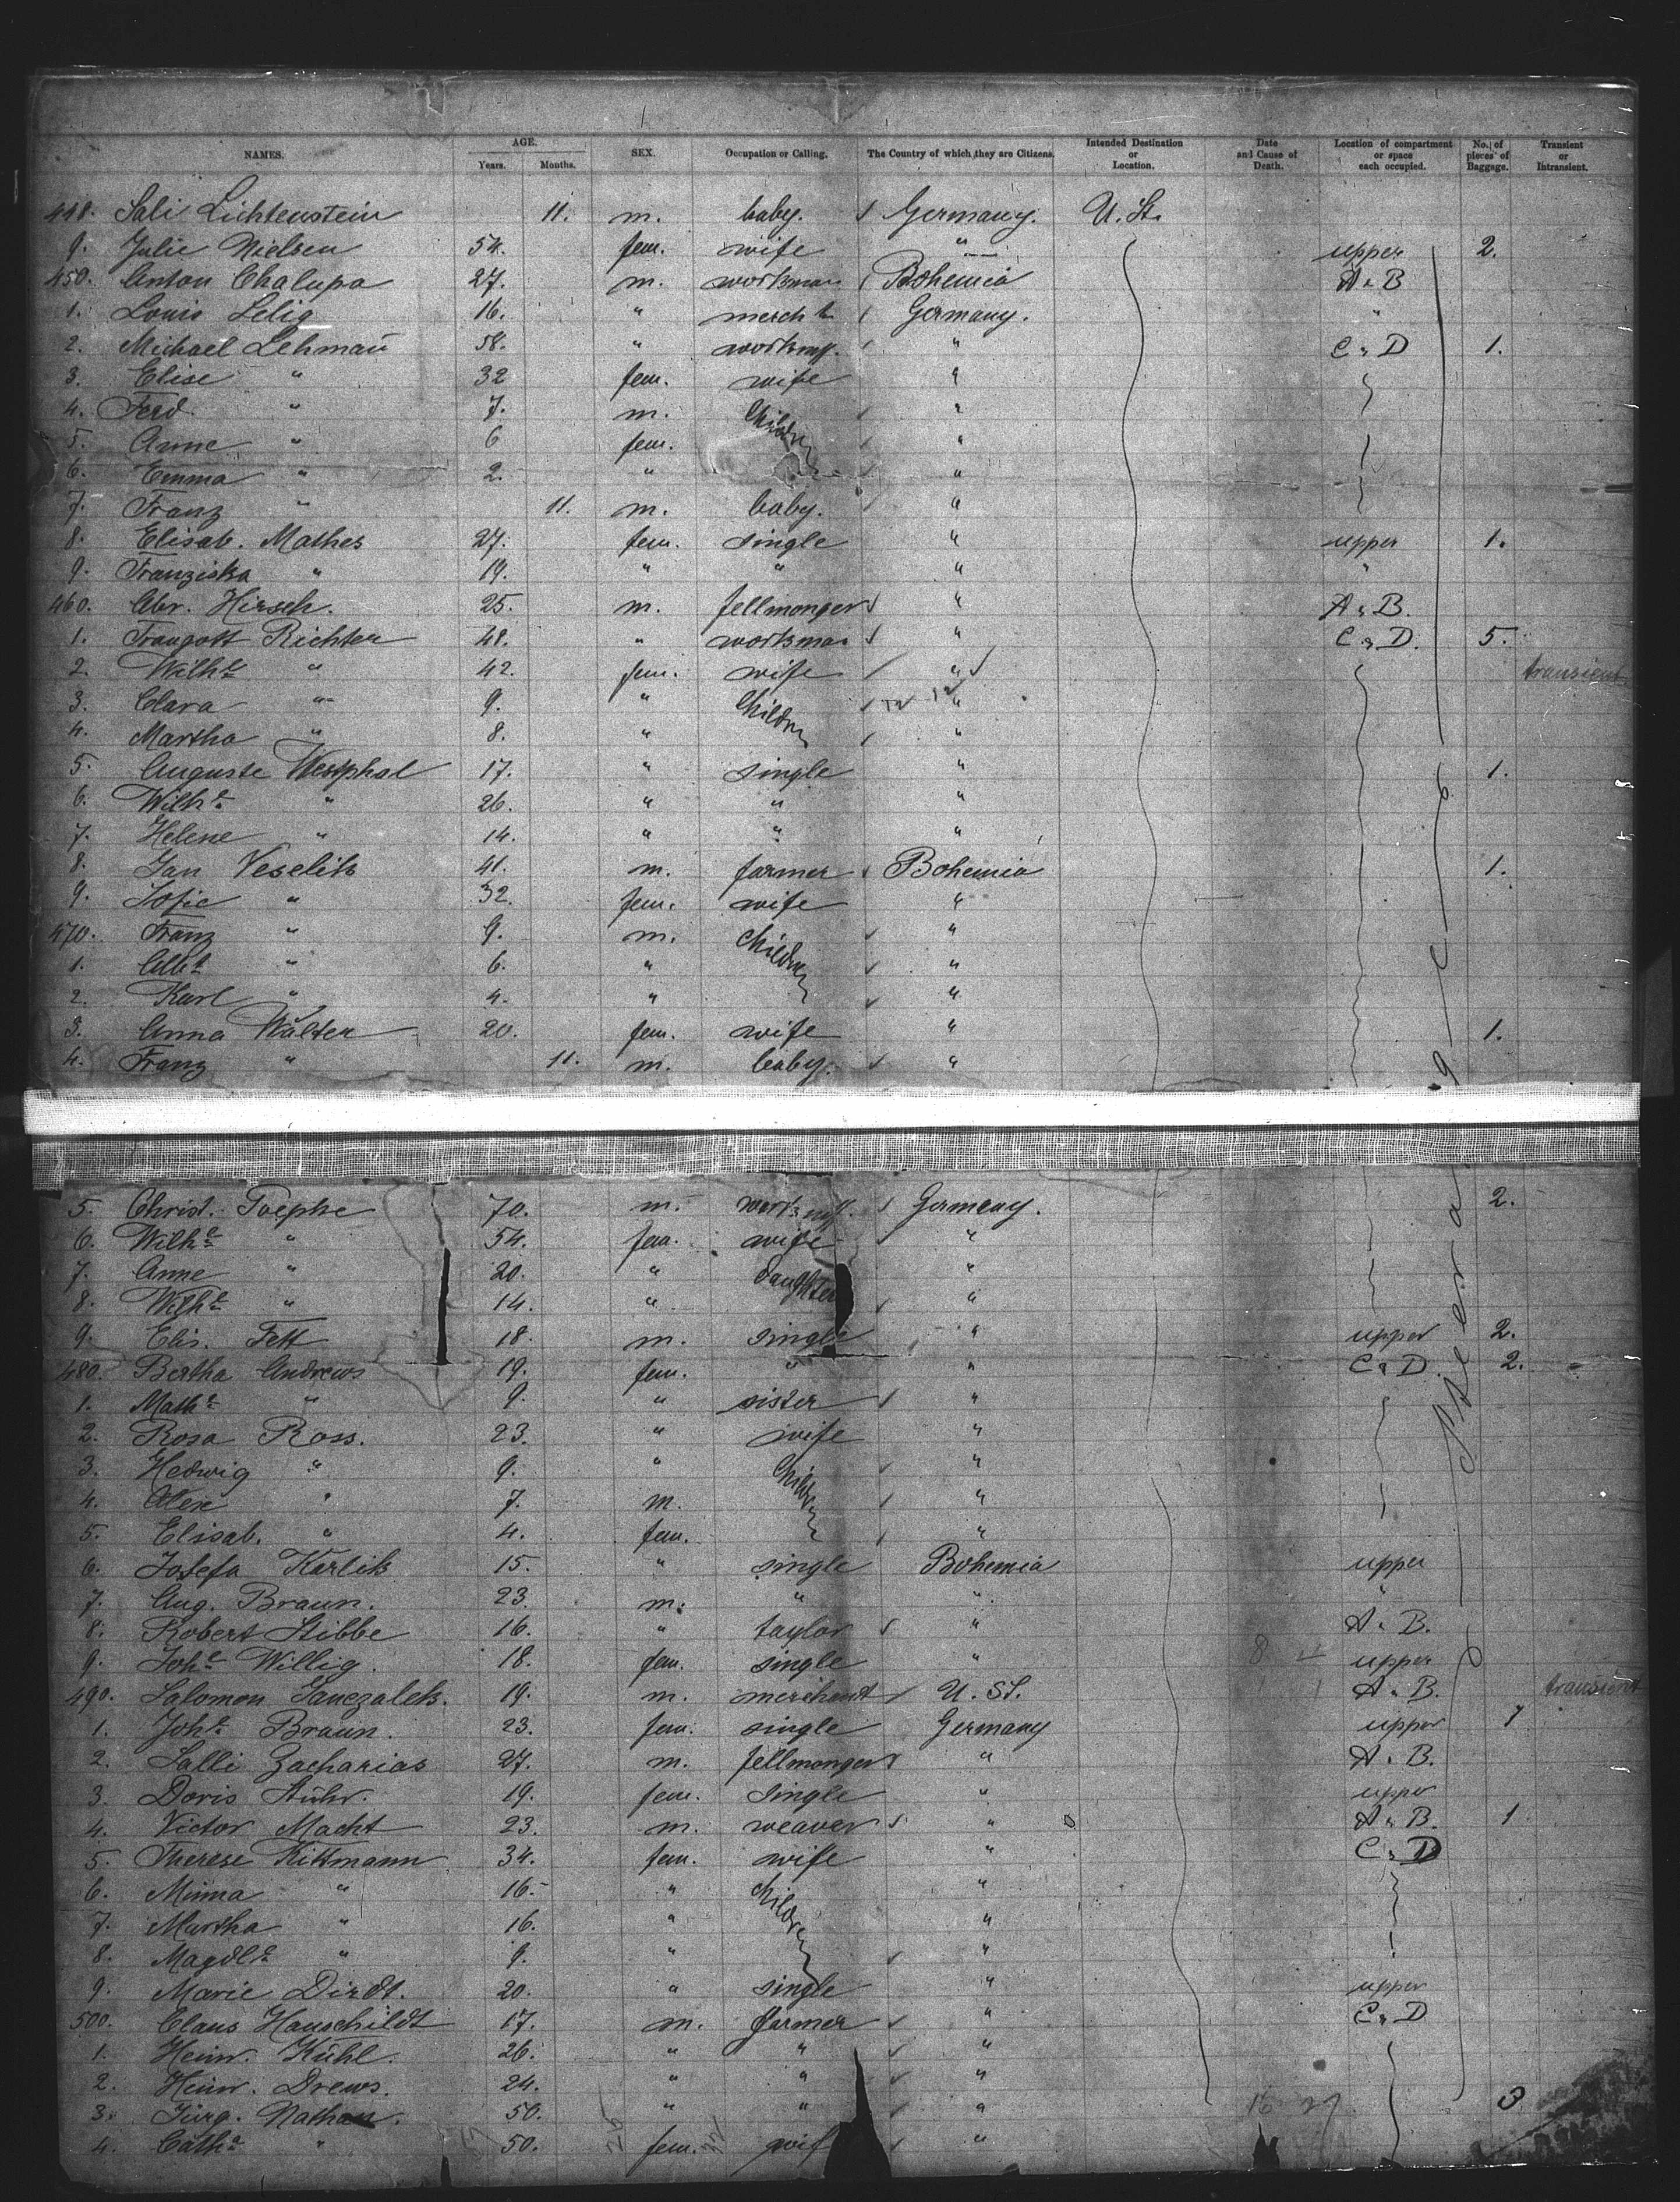 NAMES. AGE. Years. Months. SEX. Occupation or Calling. The Country of which they are Citizens. Intended Destination or Location. Date and Cause of Death. Location of compartment or space each occupied. No. of pieces of Baggage. Transient or Intransient.
448. Sali Lichtenstein 11. m. baby. Germany. U. St.
9. Julie Nielsen 54. fem. wife " upper 2.
450. Anton Chalupa 27. m. workman Bohemia A & B
1. Louis Selig 16. " mercht. Germany. "
2. Michael Lehmañ 58. " workmñ. " C & D 1.
3. Elise " 32 fem. wife "
4. Ferd. " 7. m. Children "
5. Anne " 6 fem. "
6. Emma " 2. " "
7. Franz " 11. m. baby. "
8. Elisab. Mathes 27. fem. single " upper 1.
9. Franziska " 19. " " " "
460. Abr. Hirsch. 25. m. fellmonger " A & B.
1. Traugott Richter 48. " workman " C & D. 5.
2. Wilhe " 42. fem. wife " transient
3. Clara " 9. " Children "
4. Martha " 8. " "
5. Auguste Westphal 17. " single " 1.
6. Wilhe " 26. " " "
7. Helene " 14. " " "
8. Jan Veselik 41. m. farmer Bohemia 1.
9. Sofie " 32. fem. wife "
470. Franz " 9. m. Children "
1. " 6. " "
2. Karl " 4. " "
3. Anna Walter 20. fem. wife " 1.
4. Franz " 11. m. baby. "
5. Christ. Toepke 70. m. workmñ. Germany. 2.
6. Wilhe " 54. fem. wife "
7. Anne " 20. " daughter "
8. Wilhe " 14. " "
9. Elis. Fett 18. m. single " upper 2.
480. Bertha Andrews 19. fem. " " C & D 2.
1. Mathe " 9. " sister "
2. Rosa Ross. 23. " wife "
3. Hedwig " 9. " Children "
4. Alex " 7. m. "
5. Elisab. " 4. fem. "
6. Josefa Karlik 15. " single Bohemia upper
7. Aug. Braun. 23. m. " " "
8. Robert Stibbe 16. " taylor " A & B.
9. Johe Willig. 18. fem. single " upper
490. Salomon Janczalek. 19. m. merchant U. St. A & B. transient
1. Johe Braun. 23. fem. single Germany upper 1
2. Salli Zacharias 27. m. fellmonger " A & B.
3. Doris Stühr. 19. fem. single " upper
4. Victor Macht 23. m. weaver " A & B. 1
5. Therese Kittmann 34. fem. wife " C & D
6. Minna " 16. " Children "
7. Martha " 16. " "
8. Magdle " 9. " "
9. Marie Dirdt. 20. " single " upper
500. Claus Hauschildt 17. m. farmer " C & D
1. Heinr. Kühl. 26. " " "
2. Heinr. Drews. 24. " " "
3. Jürg. Nathan. 50. " " " 3
4. Catha " 50. fem. wife "
Steerage